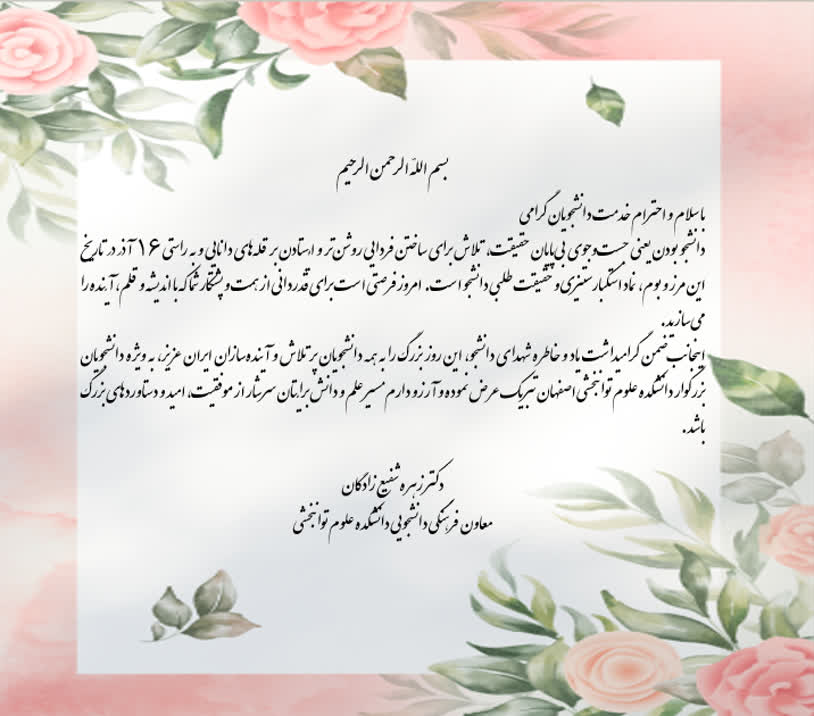 بسم اللّه الرحمن الرحیم
با سلام و احترام خدمت دانشجویان گرامی
دانشجو بودن یعنی جست‌وجوی بی‌پایان حقیقت، تلاش برای ساختن فردایی روشن‌تر و ایستادن بر قله‌های دانایی و به راستی ۱۶ آذر در تاریخ
این مرز و بوم، نماد استکبارستیزی و حقیقت طلبی دانشجو است. امروز فرصتی است برای قدردانی از همت و پشتکار شما که با اندیشه و قلم، آینده را
می‌سازید.
اینجانب ضمن گرامیداشت یاد و خاطره شهدای دانشجو، این روز بزرگ را به همه دانشجویان پر تلاش و آینده‌سازان ایران عزیز، به ویژه دانشجویان
بزرگوار دانشکده علوم توانبخشی اصفهان تبریک عرض نموده و آرزو دارم مسیر علم و دانش برایتان سرشار از موفقیت، امید و دستاوردهای بزرگ
باشد.
دکتر زهره شفیع زادگان
معاون فرهنگی دانشجویی دانشکده علوم توانبخشی